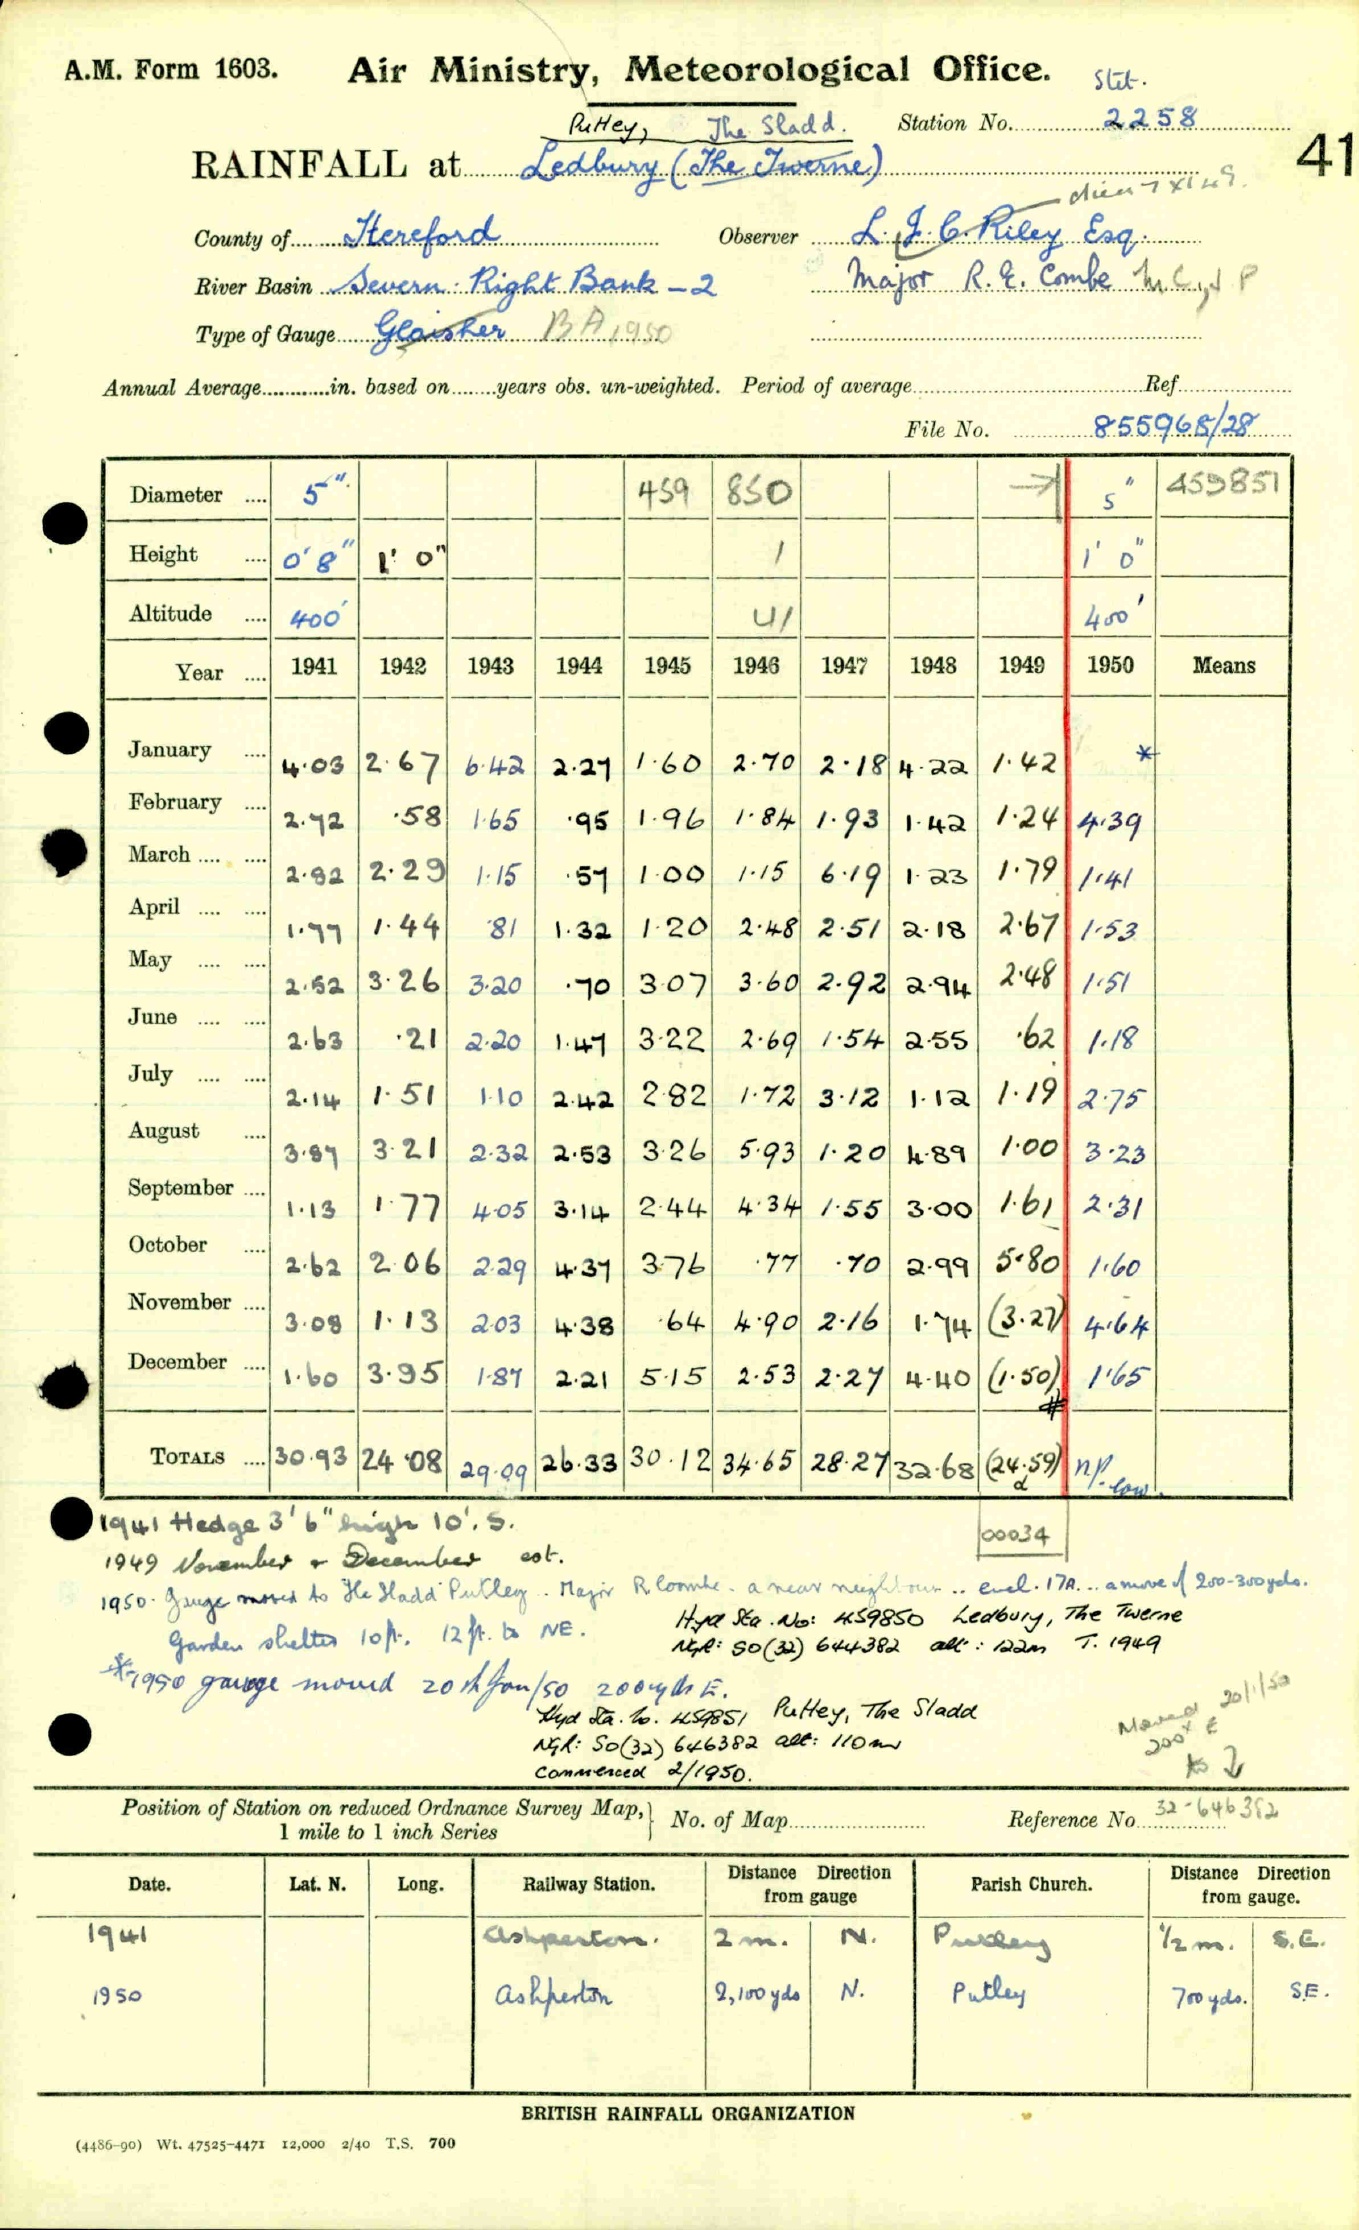 A.M. Form 1603. Air Ministry, Meteorological Office.
Stet.
Putley, The Sladd. Station No. 2258
41
RAINFALL at Ledbury (The Twerne)
County of Hereford Observer L. J. C. Riley Esq.
River Basin Severn Right Bank - 2 Major R. E. Combe
Type of Gauge Glaisher BA 1950
Annual Average in. based on years obs. un-weighted. Period of average Ref.
File No. 855968/28
Diameter 5" 459 850 5" 459851
Height 0' 8" 1' 0" 1 1' 0"
Altitude 400' 41 400'
Year 1941 1942 1943 1944 1945 1946 1947 1948 1949 1950 Means
January 4.03 2.67 6.42 2.27 1.60 2.70 2.18 4.22 1.42 *
February 2.72 .58 1.65 .95 1.96 1.84 1.93 1.42 1.24 4.39
March 2.82 2.29 1.15 .57 1.00 1.15 6.19 1.23 1.79 1.41
April 1.77 1.44 .81 1.32 1.20 2.48 2.51 2.18 2.67 1.53
May 2.52 3.26 3.20 .70 3.07 3.60 2.92 2.94 2.48 1.51
June 2.63 .21 2.20 1.47 3.22 2.69 1.54 2.55 .62 1.18
July 2.14 1.51 1.10 2.42 2.82 1.72 3.12 1.12 1.19 2.75
August 3.87 3.21 2.32 2.53 3.26 5.93 1.20 4.89 1.00 3.23
September 1.13 1.77 4.05 3.14 2.44 4.34 1.55 3.00 1.61 2.31
October 2.62 2.06 2.29 4.37 3.76 .77 .70 2.99 5.80 1.60
November 3.08 1.13 2.03 4.38 .64 4.90 2.16 1.74 (3.27) 4.64
December 1.60 3.95 1.87 2.21 5.15 2.53 2.27 4.40 (1.50) 1.65
#
TOTALS 30.93 24.08 29.09 26.33 30.12 34.65 28.27 32.68 (24.59)
00034
1941 Hedge 3' 6" high 10'. S.
1949 November & December est.
1950. Gauge moved to The Sladd Putley. Major R. Coombe. a near neighbour .. encl. 17A .. a move of 200-300yds.
Garden shelter 10ft. 12 ft. to NE.
Hyd Sta. No: 459850 Ledbury, The Twerne
NGR: SO(32) 644382 alt: 122m T. 1949
* 1950 gauge moved 20th Jan/50 200yds E.
Hyd Sta. No. 459851 Putley, The Sladd
NGR: SO(32) 646382 alt: 110m
Commenced 2/1950.
Moved 20/1/50
200x E
to
Position of Station on reduced Ordnance Survey Map, 1 mile to 1 inch Series No. of Map Reference No 32-646382
Date. Lat. N. Long. Railway Station. Distance Direction from gauge Parish Church. Distance Direction from gauge.
1941 Ashperton. 2 m. N. Putley 1/2 m. S.E.
1950 Ashperton 2,100 yds N. Putley 700 yds. S.E.
BRITISH RAINFALL ORGANIZATION
(4486-90) Wt. 47525-4471 12,000 2/40 T.S. 700